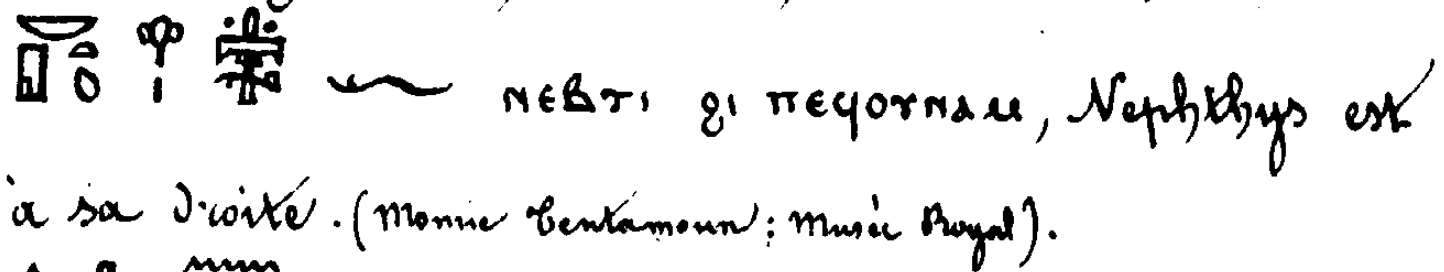 ⲛⲉⲃⲧⲓ ϩⲓ ⲡⲉϥⲟⲩⲛⲁⲙ, Nephthys est
à sa droite. (Momie Tentamoun: Musée Royal).